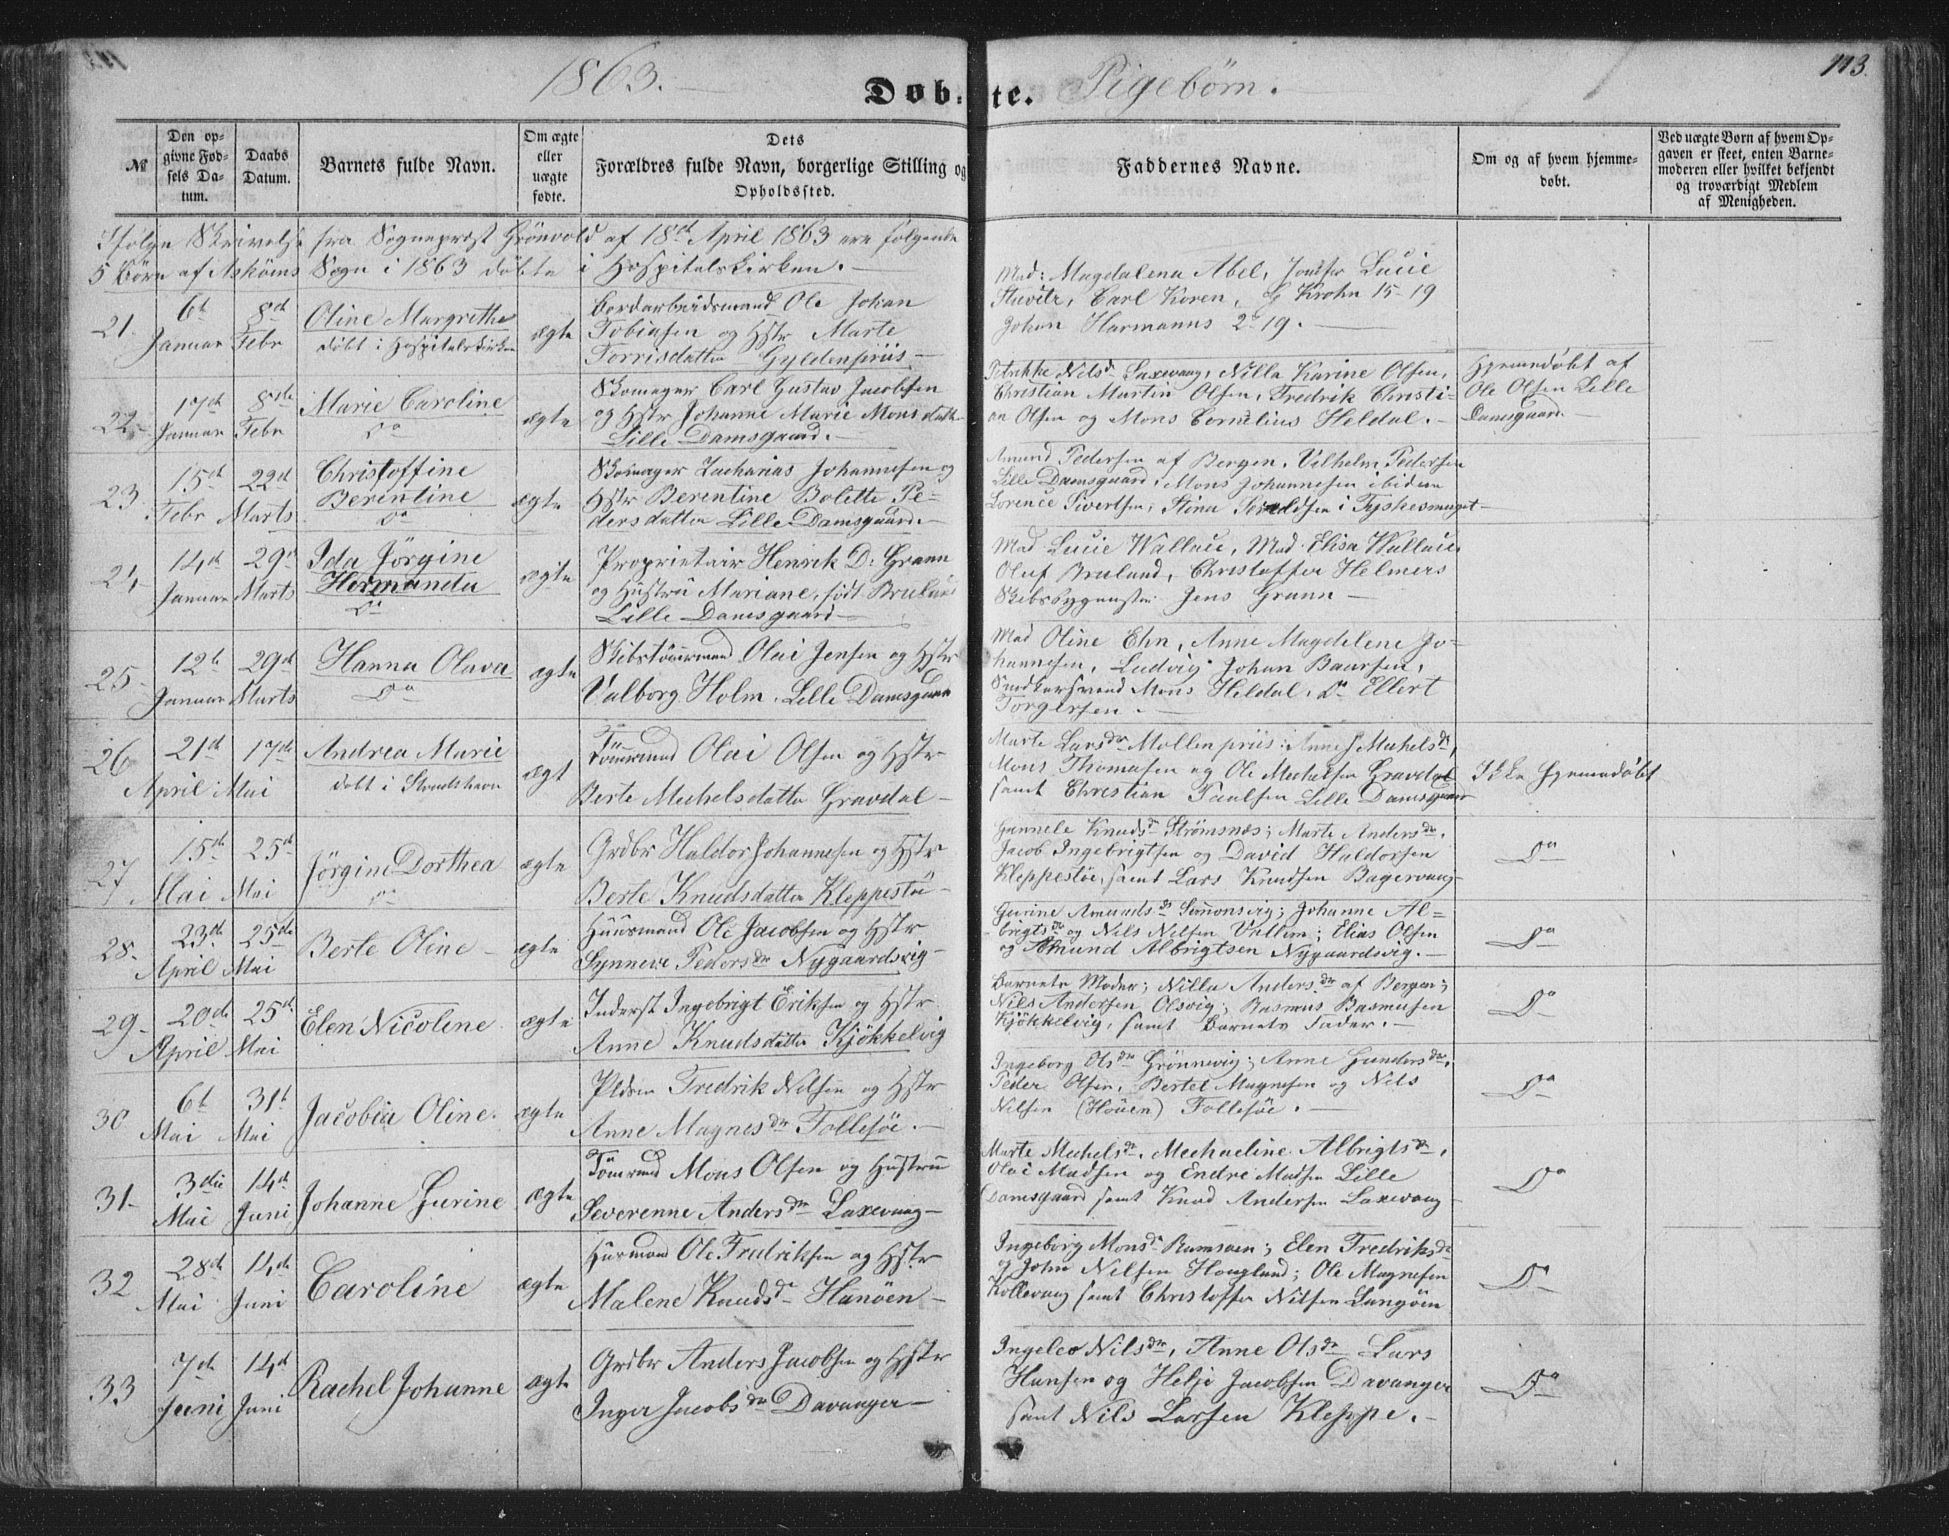 1863.
Døbte. Pigebørn.
113.
№
Den opgivne Fødsels Datum.
Daabs Datum.
Barnets fulde Navn.
Om ægte eller uægte fødte.
Dets Forældres fulde Navn, borgerlige Stilling og Opholdssted.
Faddernes Navne.
Om og af hvem hjemmedøbt.
Ved uægte Børn af hvem Opgaven er skeet, enten Barnemoderen eller hvilket bekjendt og troværdigt Medlem af Menigheden.
Ifølge Skrivelse fra Sognepræst Grönvold af 18de April 1863 ere følgende
5 Börn af Askøens Sogn i 1863 döbte i Hospitalskirken.
21.
6te Januar
8de Febr
Oline Margrethe
döbt i Hospitalskirken
ægte
Bordarbeidsmand Ole Johan
Tobiasen og Hstr Marte
Torrisdatter Gyldenpriis
Mad: Magdalena Abel, Jomfr Lucie
Stuvitz, Carl Koren, Krohn 15-19
Johan Harmanns 2-19.
22.
17de Januar
8de Febr
Marie Caroline
Do
ægte
Skomager Carl Gustav Jacobsen
og Hstr Johanne Marie Monsdatter
Lille Damsgaard.
Petrikke Nilsdr Laxevaag, Nilla Karine Olsen,
Christian Martin Olsen, Fredrik Christi-
an Olsen og Mons Cornelius Heldal.
Hjemmedöbt af
Ole Olsen Lille
Damsgaard.
23.
15de Febr
22de Marts
Christoffine
Berentine
Do
ægte
Skomager Zacharias Johannesen og
Hstr Berentine Bolette Pe-
dersdatter Lille Damsgaard.
Amund Pedersen af Bergen, Vilhelm Pedersen
Lille Damsgaard, Mons Johannesen ibidem
Lorence Sivertsen, Stina i Tydskesmuget
24
14de Januar
29de Marts
Ida Jörgine
Hermanda
Do
ægte
Proprietair Henrik D. Grann
og Hustru Mariane, födt Bruland
Lille Damsgaard
Mad Lucie Wallace, Mad. Elisa Wallace
Oluf Bruland, Christoffer Helmers
Skibsbygmester Jens Grann
25.
12te Januar
29de Marts
Hanna Olava
Do
ægte
Skibstömmermand Olai Jensen og Hstr
Valborg Holm. Lille Damsgaard
Mad Oline Ehn, Anne Magdelene Jo-
hannesen, Ludvig Johan Baarsen,
Snedkersvend Mons Heldal, Do Ellert
Torgersen.
26
21de April
17de Mai
Andrea Marie
döbt i Strudshavn
ægt
Tömmermand Olai Olsen og Hstr
Berte Mechelsdatter Gravdal
Marte Larsdr Möllenpriis, Anne Mechelsdr,
Mons Thomasen og Ole Mechelsen Gravdal
samt Christian Paulsen Lille Damsgaard
Ikke Hjemmedöbt
27
15de Mai
25de Mai
Jörgine Dorthea
Do
ægte
Grdbr Haldor Johannesen og Hstr
Berte Knudsdatter Kleppestöe
Gunnele Knudsdr Strømsnæs; Marte Andersdr,
Jacob Ingebrigtsen og David Haldorsen
Kleppestöe, samt Lars Knudsen Bagervaag
Do
28.
23de April
25de Mai
Berte Oline
ægte
Huusmand Ole Jacobsen og Hstr
Synneve Pedersdr Nygaardsvig
Gurine Amundsdr Simmonsvig; Johanne Al-
brigtsdr og Nils Nilsen Vallem; Elias Olsen
og Amund Albrigtsen Nygaardsvig.
Do
29
20de April
25de Mai
Elen Nicoline
ægte
Inderst Ingebrigt Eriksen og Hstr
Anne Knudsdatter Kjökkelvig
Barnets Moder; Nilla Andersdr af Bergen;
Nils Andersen Olsvig; Rasmus Rasmusen
Kjökkelvig, samt Barnets Fader.
Do
30
6te Mai
31te Mai
Jacobia Oline.
ægte
Pldsm Fredrik Nilsen og Hstr
Anne Magnesdr Follesöe.
Ingeborg Olsdr Grönnevig; Anne Gundersdr,
Peder Olsen, Bertel Magnesen og Nils
Nilsen (Höuen) Follesöe.
Do
31
3die Mai
14de Juni
Johanne Gurine
ægte
Tömmermd Mons Olsen og Hustru
Severenne Andersdr Laxevaag
Marte Mechelsdr, Mechaeline Albrigtsdr,
Olai Madsen og Endre Madsen Lille
Damsgaard samt Knud Andersen Laxevaag
Do
32
28de Mai
14de Juni
Caroline
ægte
Husmand Ole Fredriksen og Hstr
Malene Knudsdr Hanöen
Ingeborg Monsdr Ramsöen; Elen Fredriksdr
og John Nilsen Hougland; Ole Magnesen
Kollevaag samt Christoffer Nilsen Langöen
Do
33
7de Juni
14de Juni
Rachel Johanne
ægte
Grdbr Anders Jacobsen og Hstr
Inger Jacobsdr Davanger
Ingeleo Nilsdr, Anne Olsdr Lars
Hansen og Helje Jacobsen Davanger
samt Nils Larsen Kleppe.
Do